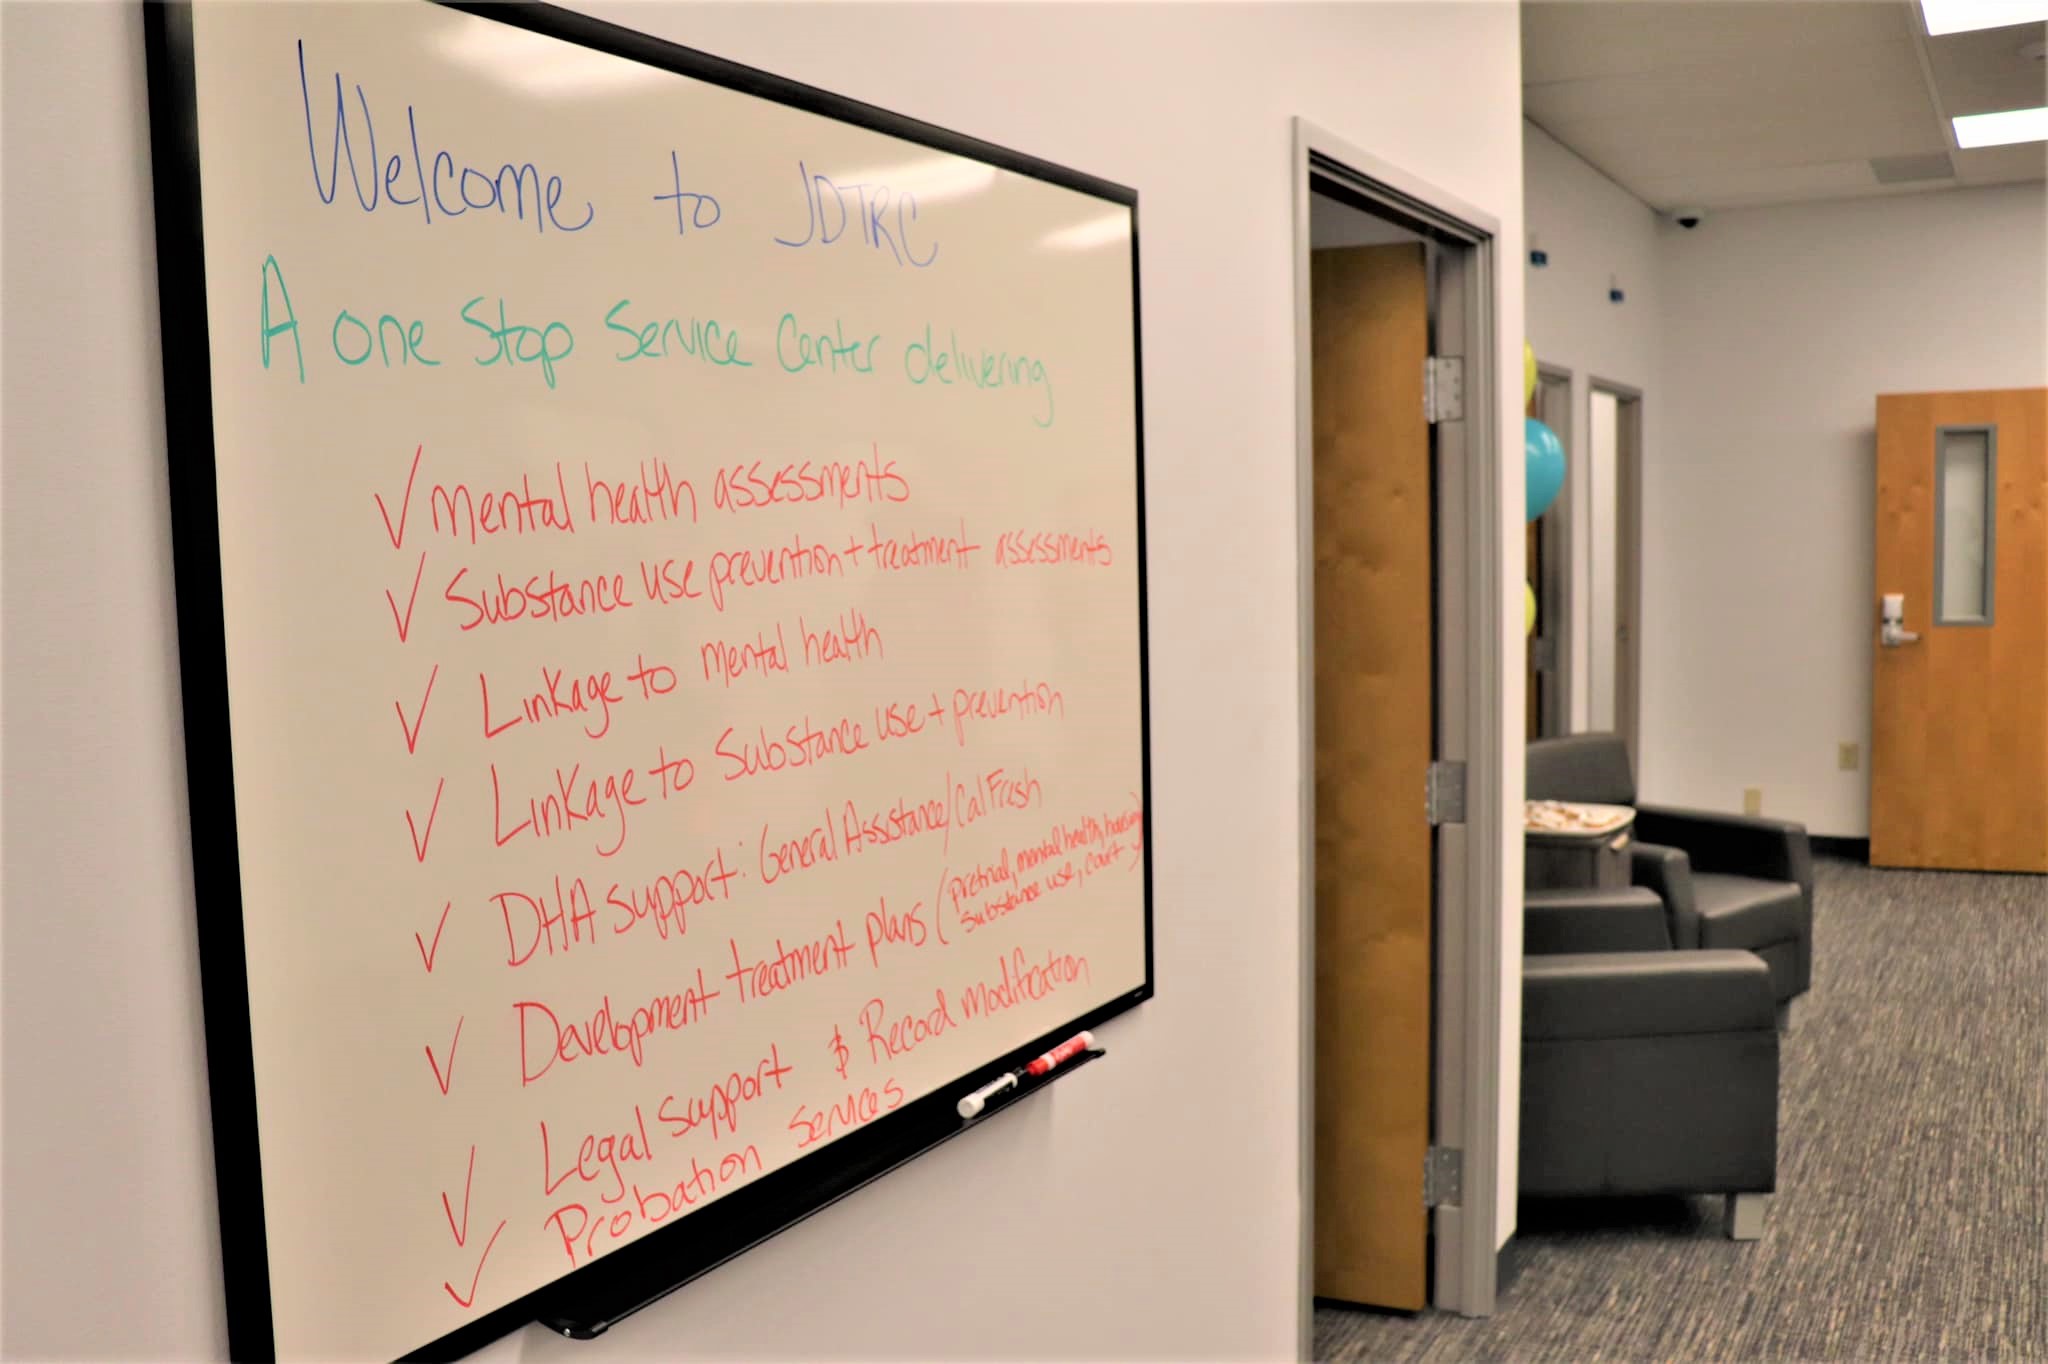 Welcome to JDTRC
A one stop service center delivering
✓ mental health assessments
✓ Substance use prevention + treatment assessments
✓ Linkage to mental health
✓ Linkage to substance use + prevention
✓ DHA support: General Assistance/CalFresh
✓ Development treatment plans (pretrial, mental health, housing
substance use, court)
✓ Legal support & Record modification
✓ Probation services